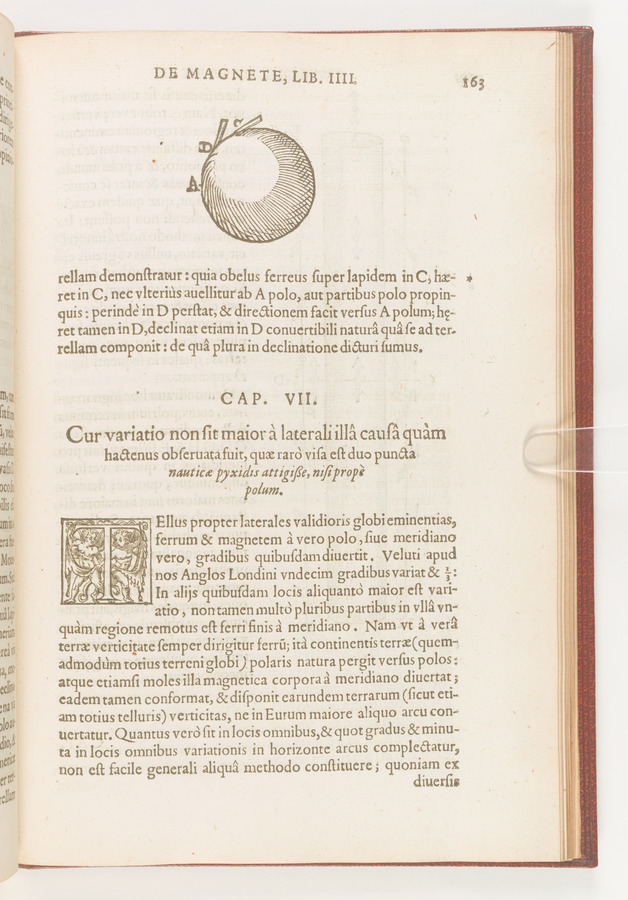 DE MAGNETE, LIB. IIII.
163
C
D
A
rellam demonſtratur : quia obelus ferreus ſuper lapidem in C, hæ- *
ret in C, nec vlteriùs auellitur ab A polo, aut partibus polo propin-
quis : perindè in D perſtat, & directionem facit verſus A polum; hę-
ret tamen in D, declinat etiam in D conuertibili naturâ quâ ſe ad ter-
rellam componit : de quâ plura in declinatione dicturi ſumus.
CAP. VII.
Cur variatio non ſit maior à laterali illâ cauſâ quàm
hactenus obſeruata fuit, quæ rarò viſa eſt duo puncta
nauticæ pyxidis attigiſſe, niſi propè
polum.
TEllus propter laterales validioris globi eminentias,
ferrum & magnetem à vero polo, ſiue meridiano
vero, gradibus quibuſdam diuertit. Veluti apud
nos Anglos Londini vndecim gradibus variat & ⅓:
In alijs quibuſdam locis aliquantò maior eſt vari-
atio, non tamen multò pluribus partibus in vllâ vn-
quàm regione remotus eſt ferri finis à meridiano. Nam vt à verâ
terræ verticitate ſemper dirigitur ferrũ; ità continentis terræ (quem-
admodùm totius terreni globi) polaris natura pergit verſus polos :
atque etiamſi moles illa magnetica corpora à meridiano diuertat ;
eadem tamen conformat, & diſponit earundem terrarum (ſicut eti-
am totius telluris) verticitas, ne in Eurum maiore aliquo arcu con-
uertatur. Quantus verò ſit in locis omnibus, & quot gradus & minu-
ta in locis omnibus variationis in horizonte arcus complectatur,
non eſt facile generali aliquâ methodo conſtituere ; quoniam ex
diuerſis